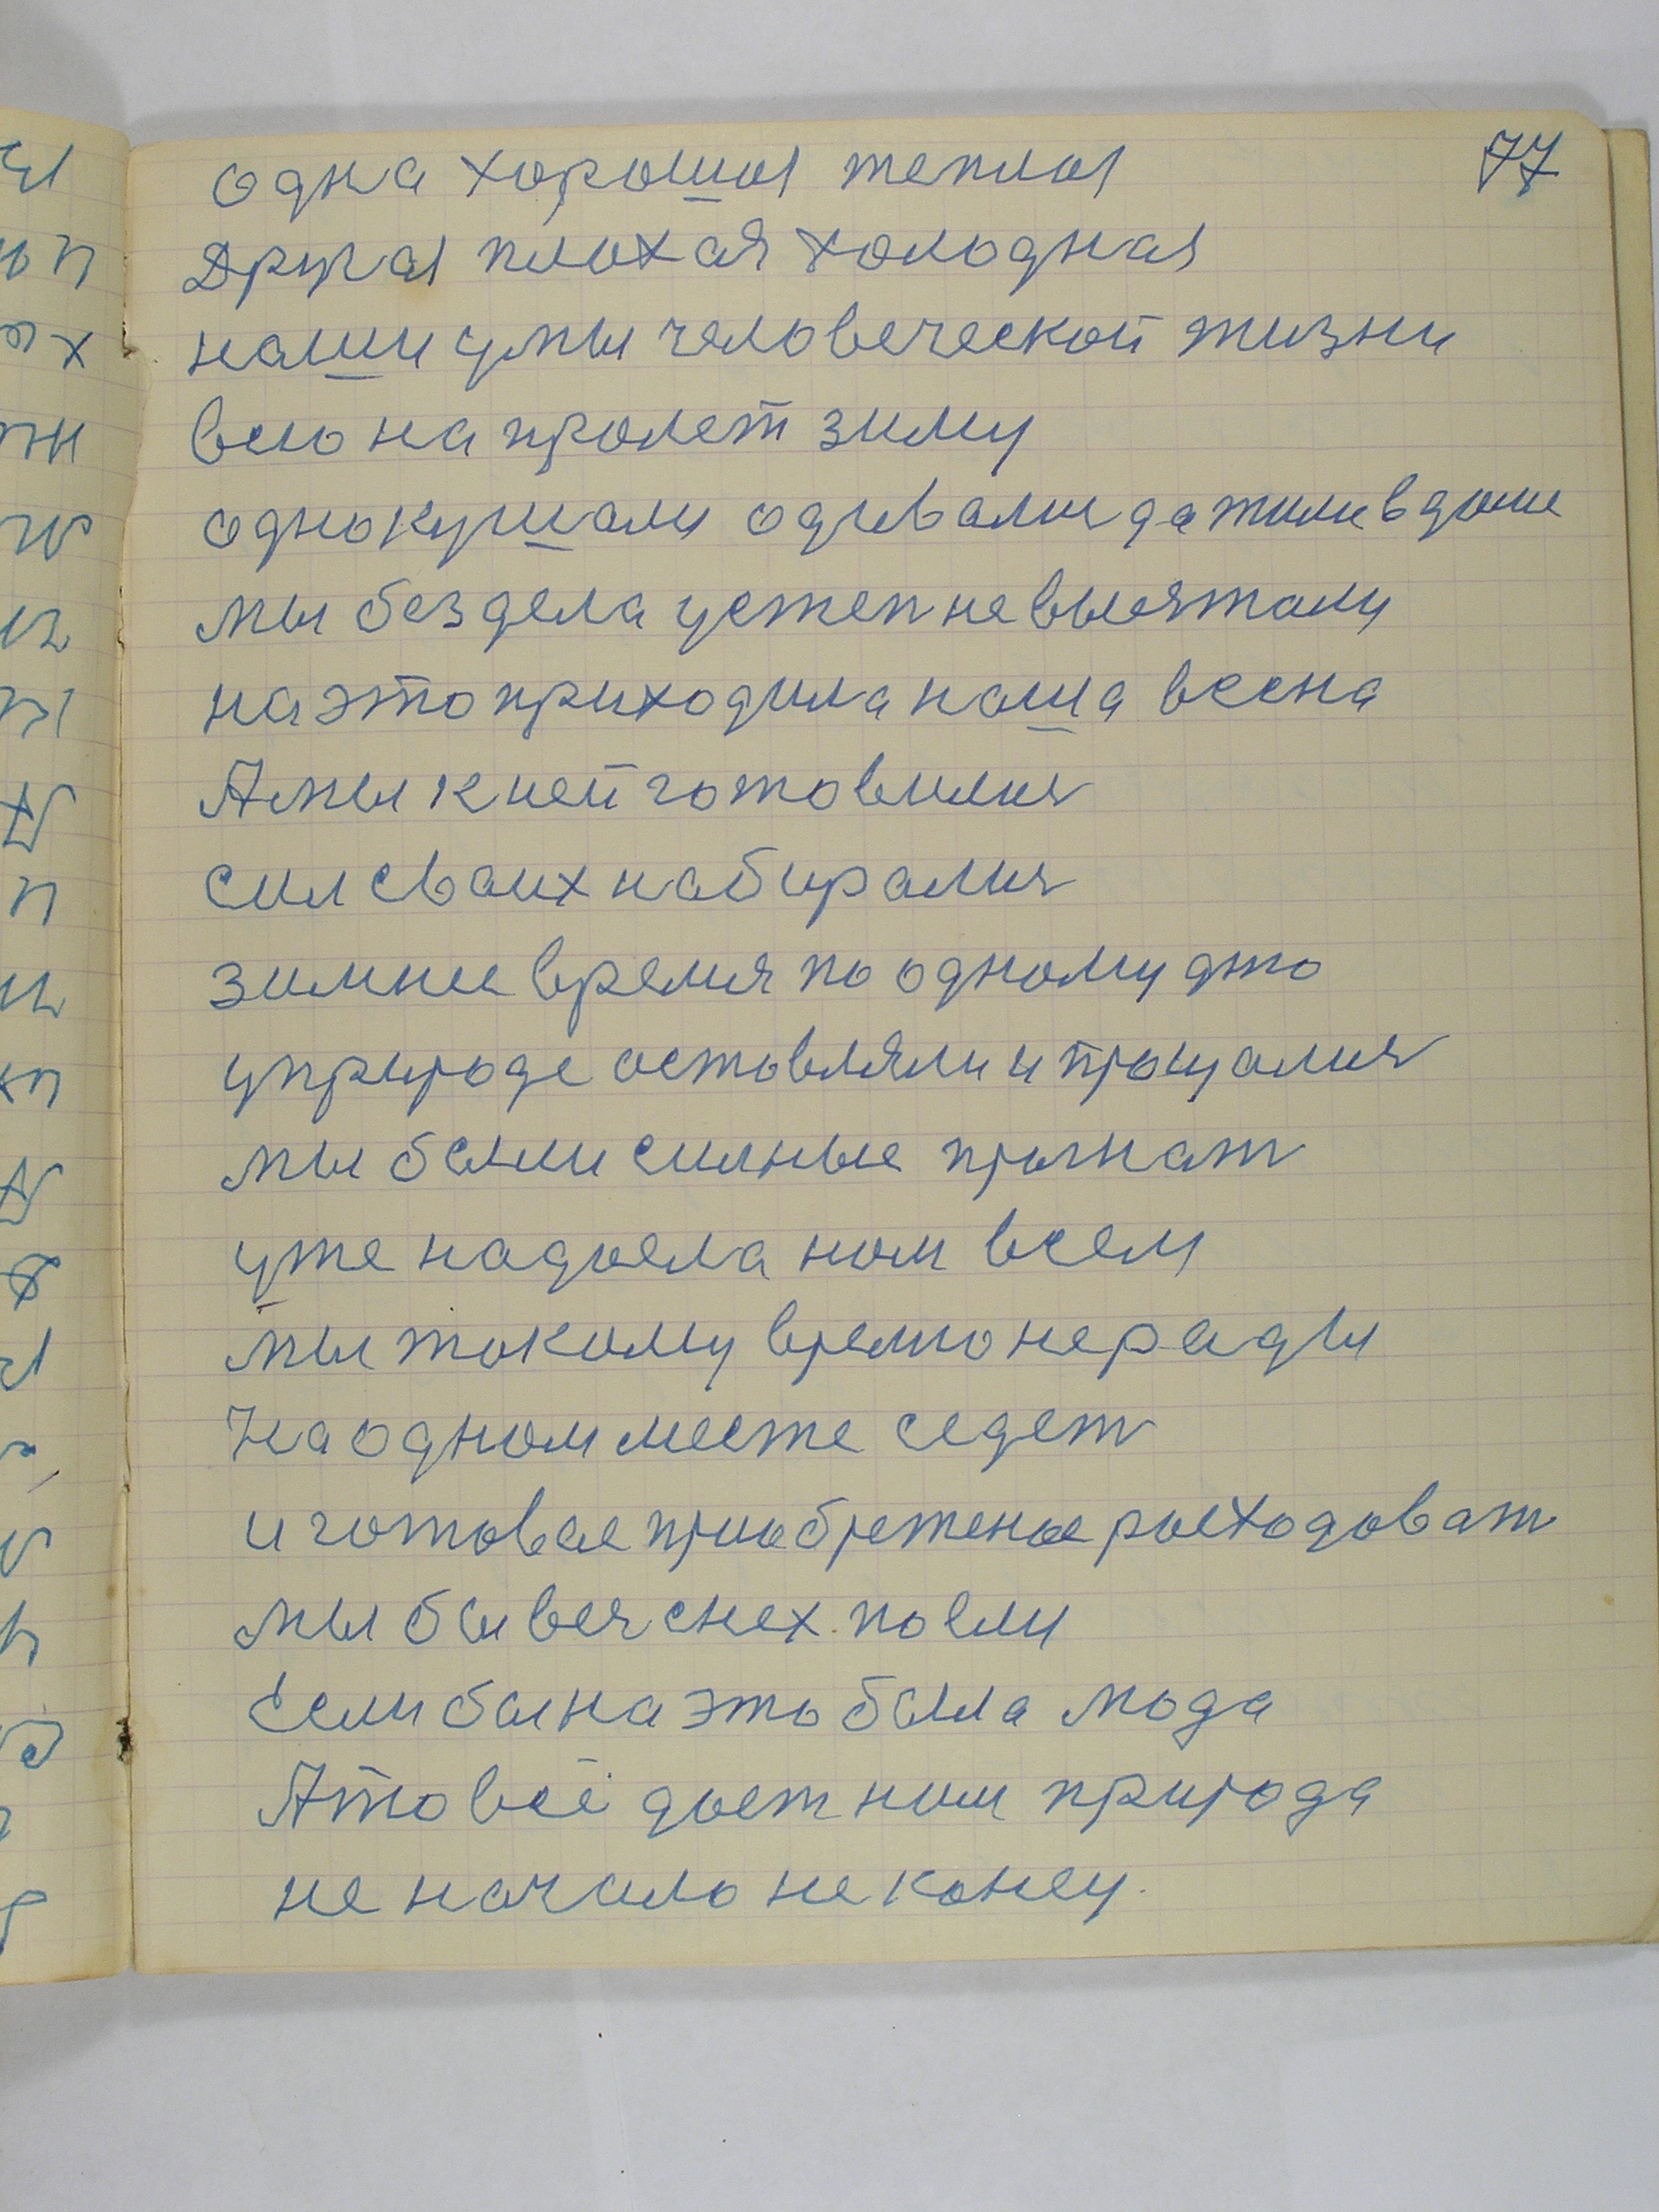 77
одна хорошая теплая
Другая плохая холодная
наши умы человеческой жизни
всю напролет зиму
однокушали одивались да жили в доме
мы без дела у степ не выежтали
на это приходила наша весна
А мы к ней готовились
сил своих набирались
зимнее время по одному дню
у природе оставляли и прощались
мы были силные прогнат
уже надоела нам всем
мы такому времю не рады
На одном месте седет
и готовое приобретеное росходоват
мы бы вес снех поели
Если бы на это была мода
А то всё дает нам природа
не начало не конец.